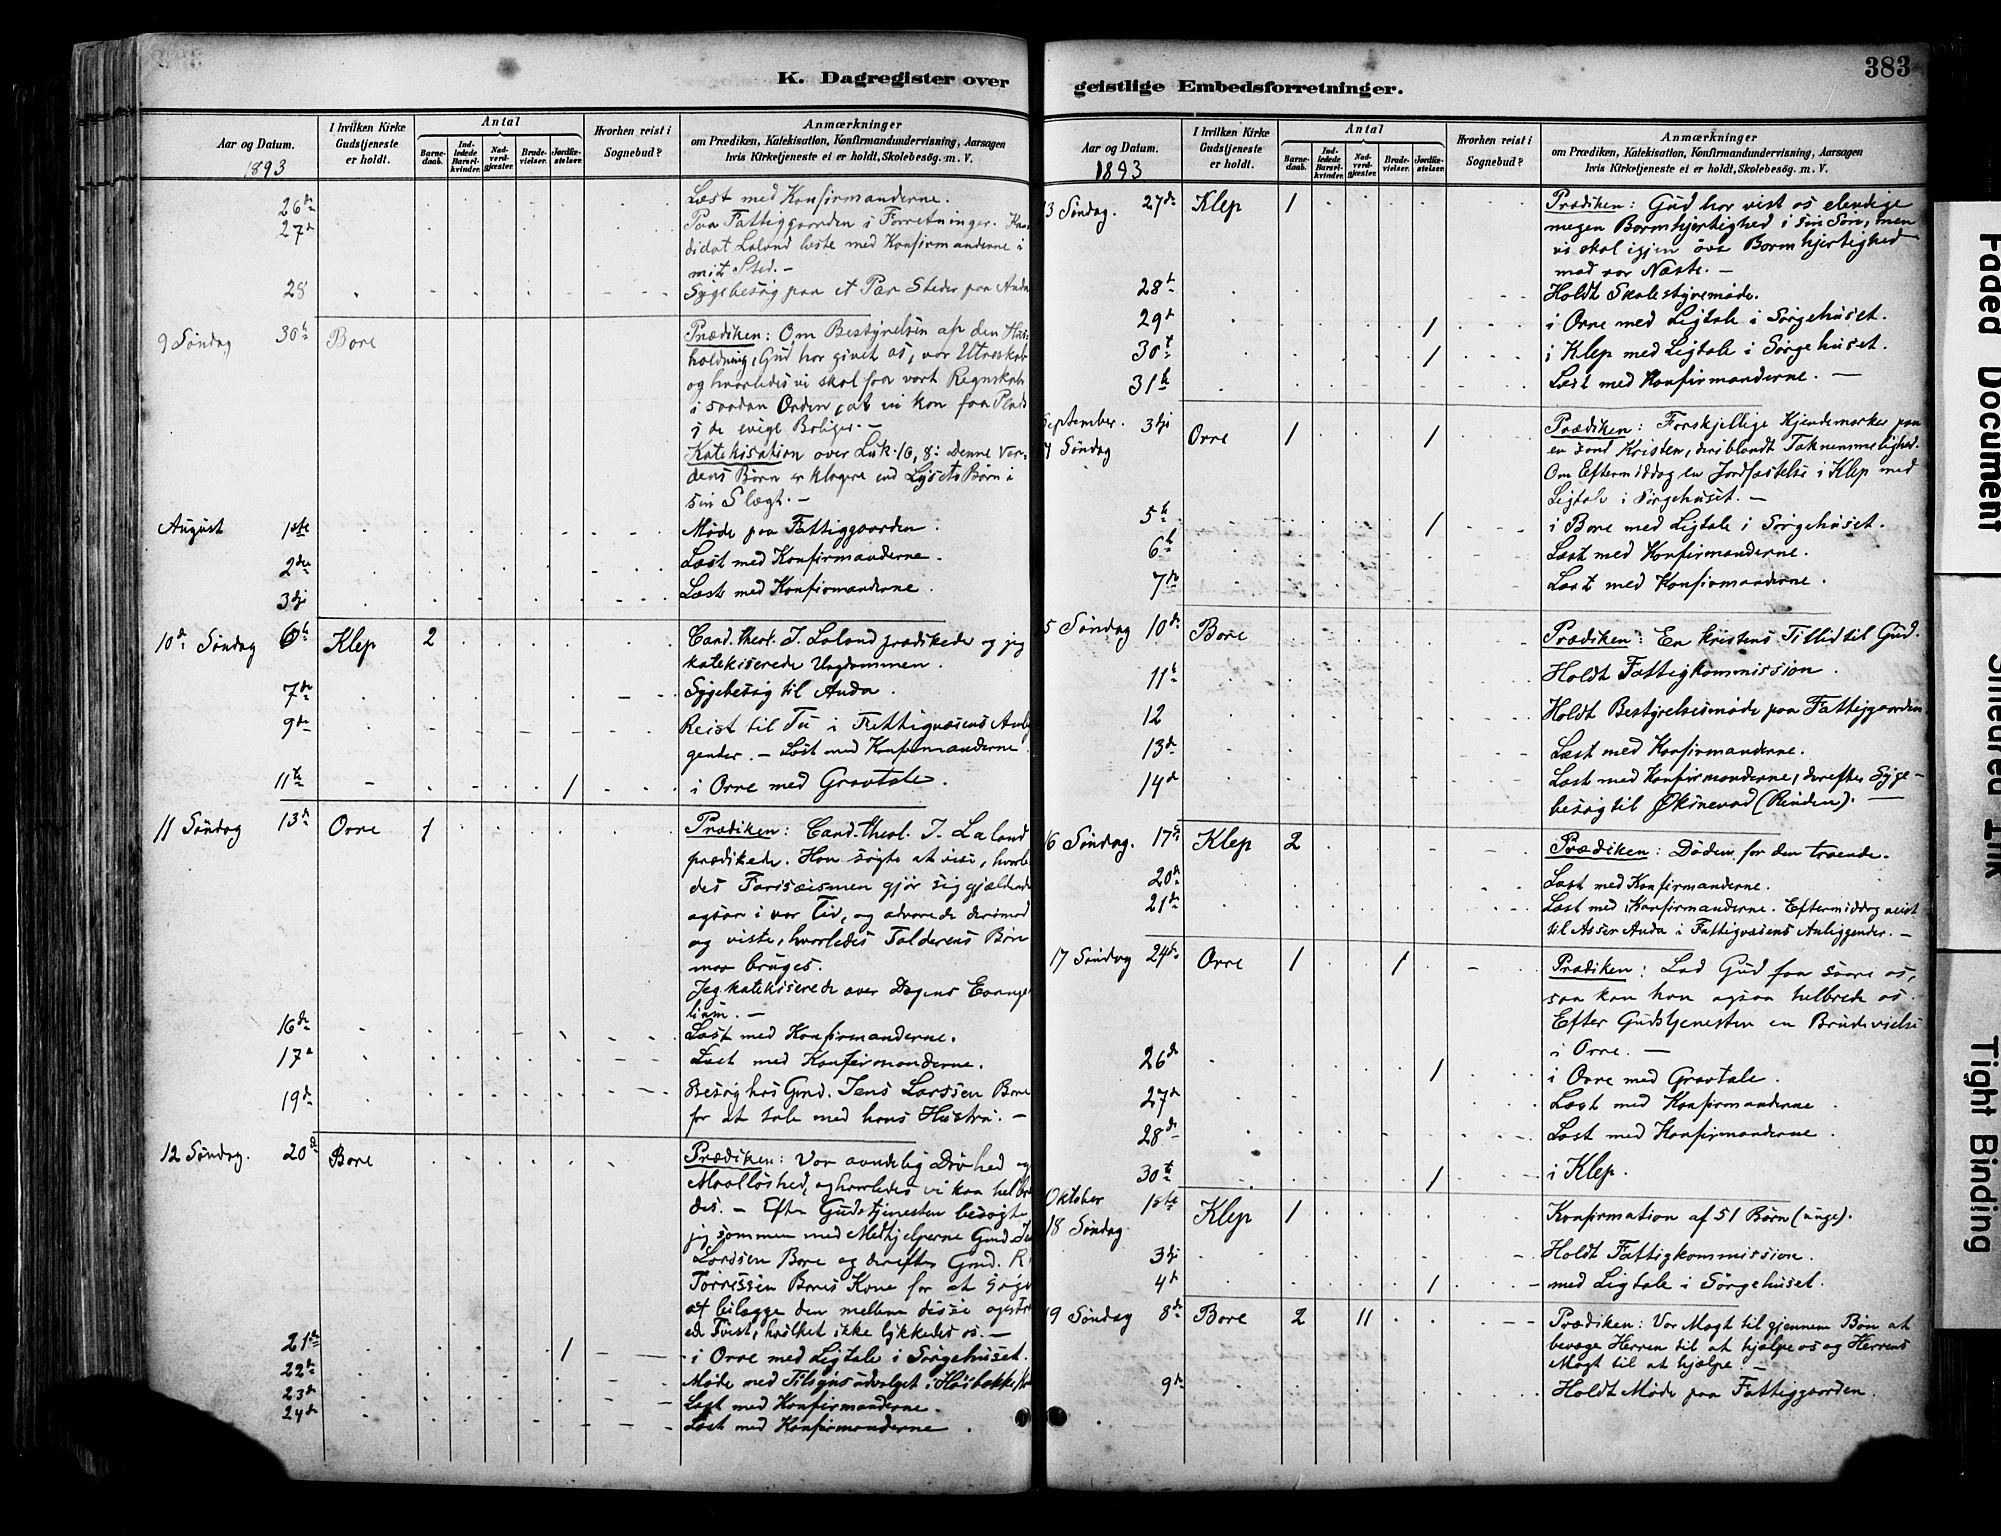 K. Dagregister over
Aar og Datum.
1893
I hvilken Kirke Gudstjeneste er holdt.
Antal
Barnedaab.
Indledede Barselkvinder.
Nadverdgjæster.
Brudevielser.
Jordfæstelser.
Hvorhen reist i Sognebud?
Anmærkninger
om Prædiken, Katekisation, Konfirmandundervisning, Aarsagen
hvis Kirketjeneste ei er holdt, Skolebesøg. m. V.
26de Læst med Konfirmanderne.
27de Paa Fattiggaarden i Forretninger. Kan-
didat Laland læste med Konfirmanderne i
mit Sted. -
28 Sygebesøg paa et Par Steder paa Anda
9 Søndag 30te Bore Prædiken: Om Bestyrelsen af den Hus-
holdning, Gud har givet os, vor Utroskab
og hvorledes vi skal faa vort Regnskab
i saadan Orden, at vi kan faa Plads
i de evige Boliger. -
Katekisation over Luk. 16, 8: Denne Ver-
dens Børn er klogere end Lysets Børn i
sin Slægt. -
August 1ste Møde paa Fattiggaarden.
2den Læst med Konfirmanderne.
3dje Læste med Konfirmanderne.
10de Søndag 6te Klep 2 Cand. theol. J. Laland prædikede og jeg
katekiserede Ungdommen.
7de Sygebesøg til Anda.
9de Reist til Tu i Fattigvæsens Anlig-
gender. - Læst med Konfirmanderne.
11te 1 i Orre med Gravtale.
11 Søndag 13de Orre 1 Prædiken: Cand. theol. J. Laland
prædikede. Han søgte at vise, hvorle-
des Farisæismen gjør sig gjældende
ogsaa i vor Tid, og advarede derimod
og viste, hvorledes Tolderens Bøn
maa bruges.
Jeg katekiserede over Dagens Evange-
lium. -
16de Læst med Konfirmanderne.
17de Læst med Konfirmanderne.
19de Besøg hos Gmd. Jens Larssen Bore
for at tale med hans Hustru. -
12 Søndag. 20de Bore Prædiken: Vor aandelig Døvhed og
Maalløshed, og hvorledes vi kan helbre-
des. - Efter Gudstjenesten besøgte
jeg sammen med Medhjelperne Gmd. Jens
Larssen Bore og derefter Gmd. R.
Torrissen Bores Kone for at søge
at bilægge den mellem disse opstaa-
ede Tvist, hvilket ikke lykkedes os. -
21de 1 i Orre med Ligtale i Sørgehuset.
22de Møde med Tilsynsudvalget i
23de Læst med Konfirmanderne.
24de Læst med Konfirmanderne.
geistlige Embedsforretninger.
383
Aar og Datum.
1893
I hvilken Kirke Gudstjeneste er holdt.
Antal
Barnedaab.
Indledede Barselkvinder.
Nadverdgjæster.
Brudevielser.
Jordfæstelser.
Hvorhen reist i Sognebud?
Anmærkninger
om Prædiken, Katekisation, Konfirmandundervisning, Aarsagen
hvis Kirketjeneste ei er holdt, Skolebesøg. m. V.
13 Søndag. 27de Klep 1 Prædiken: Gud har vist os elendige
megen Barmhjertighed i sin Søn, men
vi skal igjen øve Barmhjertighed
mod vor Næste. -
28de Holdt Skolestyremøde.
29de 1 i Orre med Ligtale i Sørgehuset.
30te 1 i Klep med Ligtale i Sørgehuset.
31te Læst med Konfirmanderne. -
September. 3dje Orre 1 1 Prædiken: Forskjellige Kjendemærker paa
14 Søndag en sand Kristen, deriblandt Taknemmelighed.
Om Eftermiddag en Jordfæstelse i Klep med
Ligtale i Sørgehuset. -
5te 1 i Bore med Ligtale i Sørgehuset.
6te Læst med Konfirmanderne.
7de Læst med Konfirmanderne.
15 Søndag 10de Bore Prædiken: En kristens Tillid til Gud.
11te Holdt Fattigkommission.
12 Holdt Bestyrelsesmøde paa Fattiggaarden.
13de Læst med Konfirmanderne.
14de Læst med Konfirmanderne, derefter Syge-
besøg til Øksnevad (Rinden). -
16 Søndag. 17de Klep 2 Prædiken: Døden for den troende.
20de Læst med Konfirmanderne.
21de Læst med Konfirmanderne. Eftermiddag reist
til Asser Anda i Fattigvæsens Anliggender. -
17 Søndag 24de Orre 1 1 Prædiken: Lad Gud faa saare os,
saa kan han ogsaa helbrede os.
Efter Gudstjenesten en Brudevielse
i Orre. -
26de 1 i Orre med Gravtale.
27de Læst med Konfirmanderne.
28de Læst med Konfirmanderne.
30te 1 i Klep.
Oktober 1ste Klep 1 Konfirmation af 51 Børn (unge).
18 Søndag
3dje Holdt Fattigkommission.
4de 1 med Ligtale i Sørgehuset.
19 Søndag 8de Bore 2 11 Prædiken: Vor Magt til gjennem Bøn at
bevæge Herren til at hjælpe os og Herrens
Magt til at hjælpe. -
9de Holdt Møde paa Fattiggaarden.
Faded Document
Smeared Ink
Tight Binding